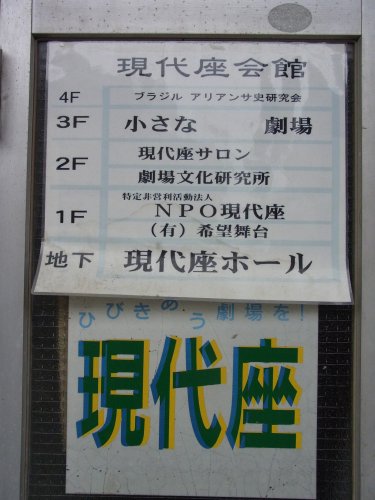 現代座会館
4F ブラジル アリアンサ史研究会
3F 小さな 劇場
2F 現代座サロン
劇場文化研究所
特定非営利活動法人
1F NPO現代座
(有)希望舞台
地下 現代座ホール
ひびきあう劇場を!
現代座